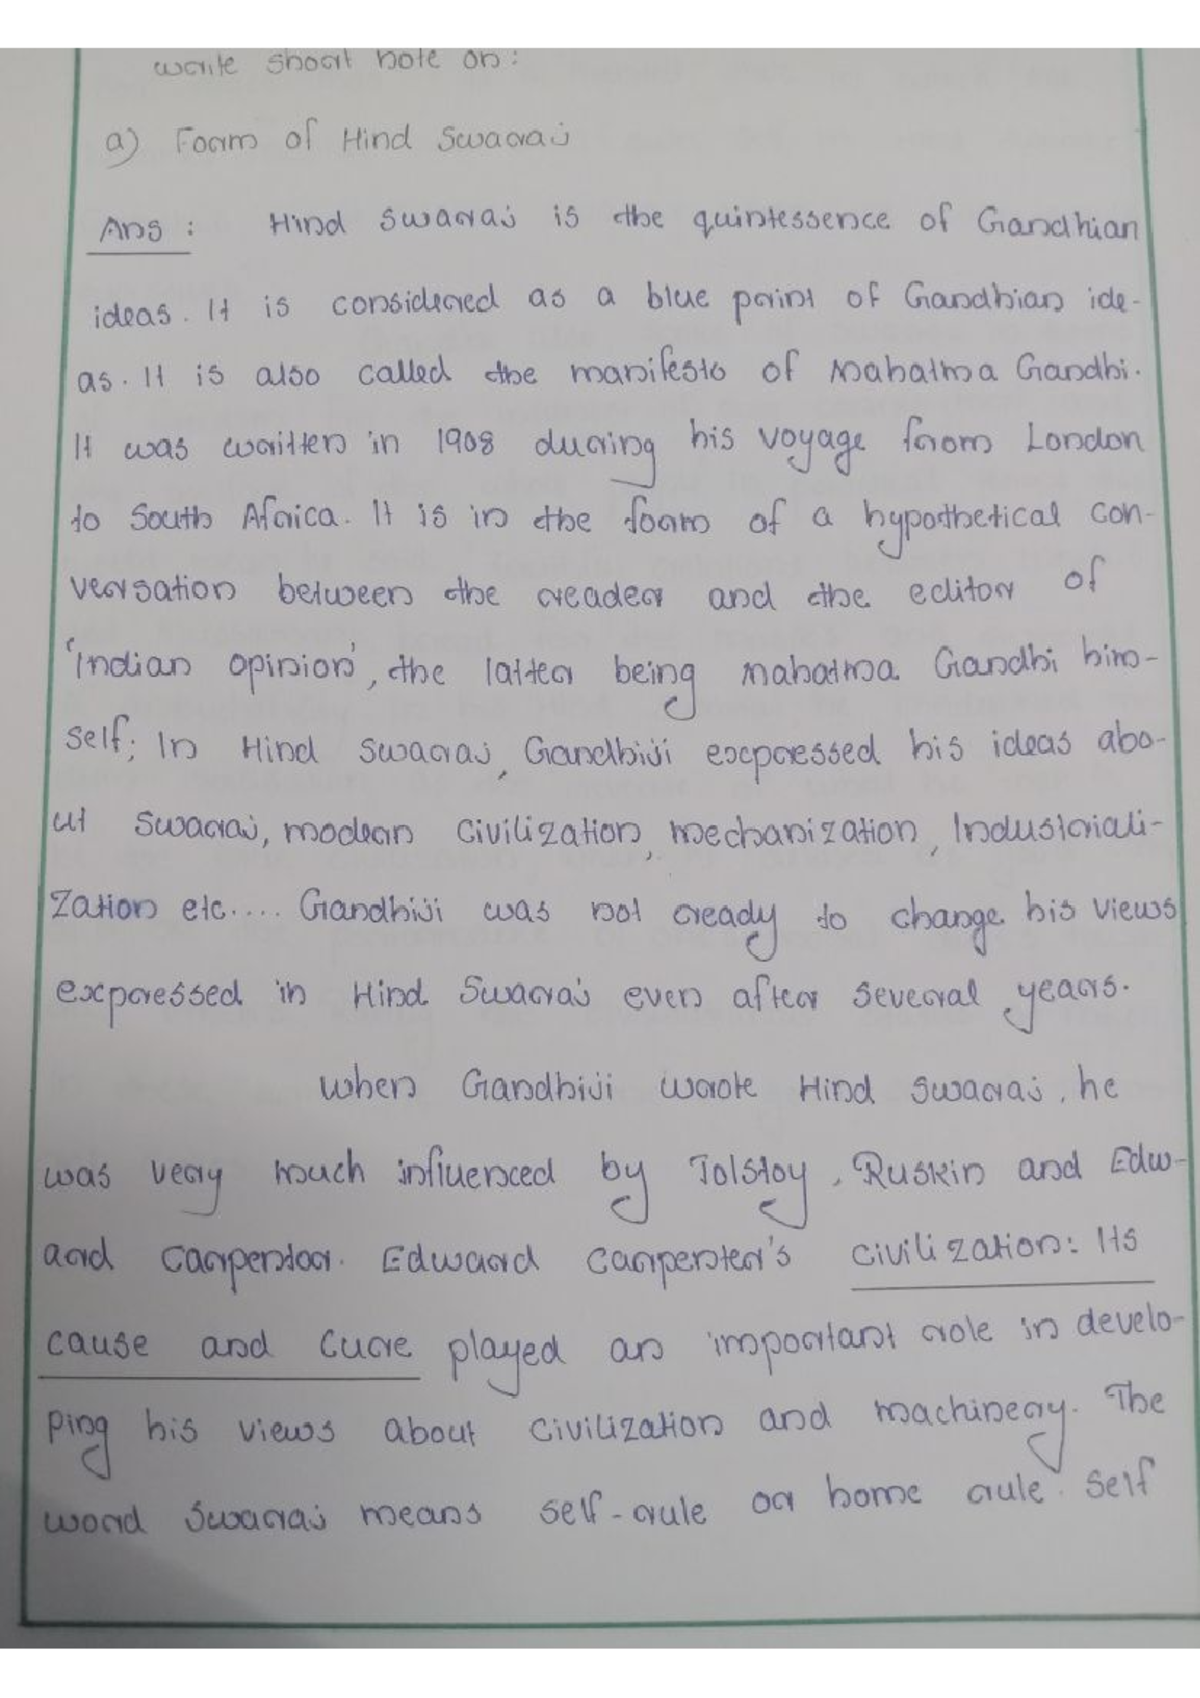 write short note on:
a) Form of Hind Swaraj
Ans : Hind Swaraj is the quintessence of Gandhian
ideas. It is considered as a blue print of Gandhian ide-
as. It is also called the manifesto of Mahatma Gandhi.
It was written in 1908 during his voyage from London
to South Africa. It is in the form of a hypothetical con-
versation between the reader and the editor of
'Indian opinion', the latter being Mahatma Gandhi him-
self; In Hind Swaraj, Gandhiji expressed his ideas abo-
ut Swaraj, modern civilization, mechanization, Industriali-
zation etc.... Gandhiji was not ready to change his views
expressed in Hind Swaraj even after several years.
When Gandhiji wrote Hind Swaraj, he
was very much influenced by Tolstoy, Ruskin and Edw-
ard Carpentor. Edward Carpenter's civilization: Its
cause and Cure played an important role in develo-
ping his views about civilization and machinery. The
word Swaraj means self-rule or home rule. Self